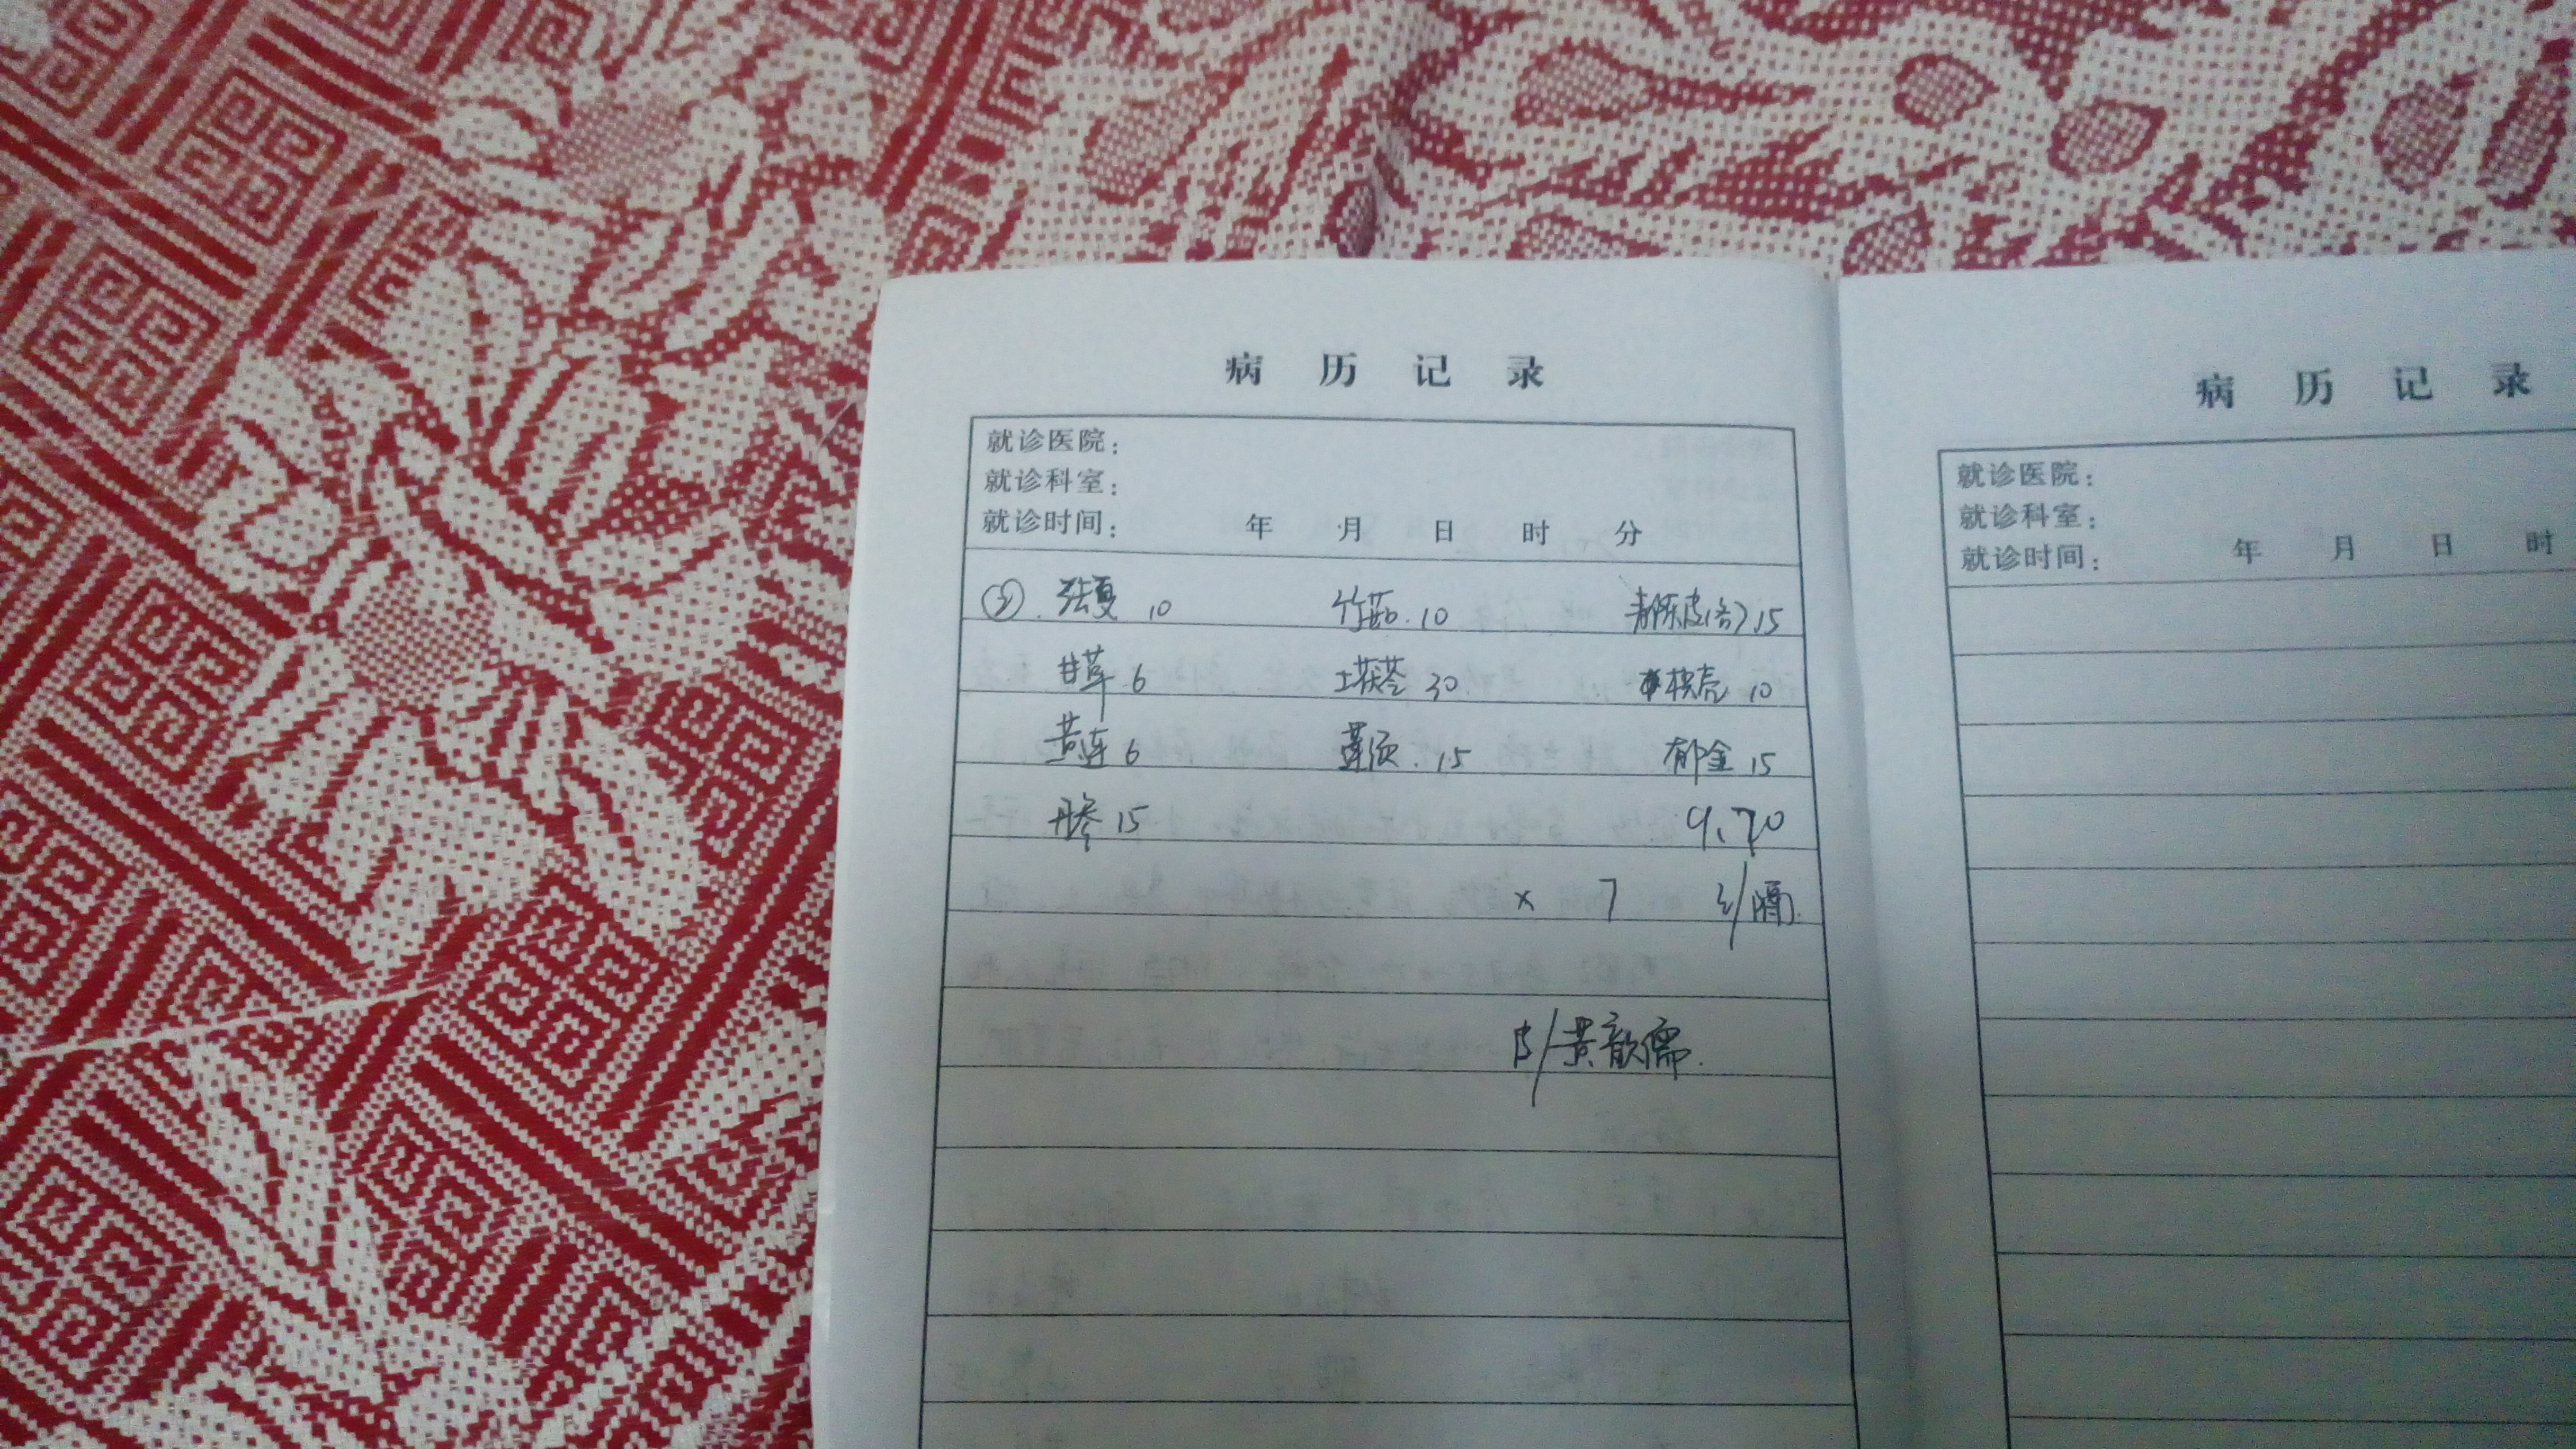 病历记录
就诊医院：
就诊科室：
就诊时间： 年 月 日 时 分
② 法夏 10 竹茹 10 青陈皮(各) 15
甘草 6 土茯苓 30 枳壳 10
黄连 6 莲须 15 郁金 15
丹参 15 9.70
× 7
黄歆儒
病历记录
就诊医院：
就诊科室：
就诊时间： 年 月 日 时